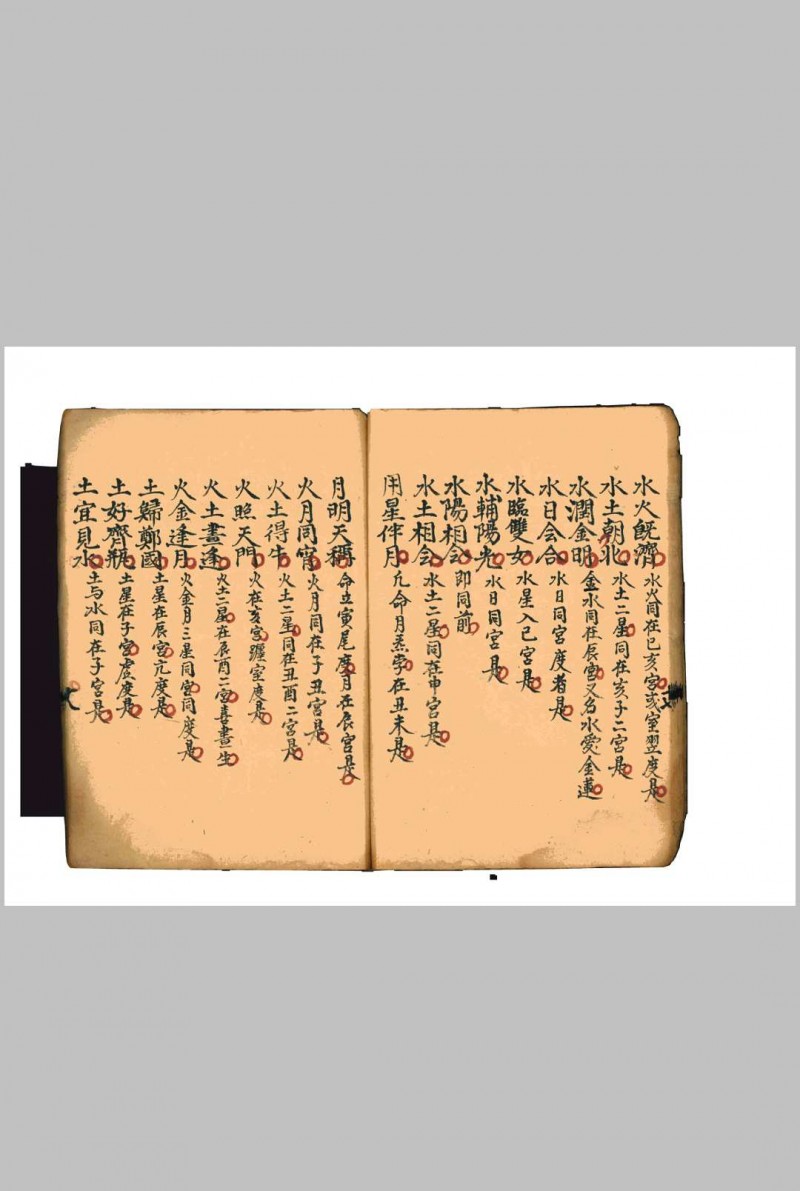 水火既濟 水火同在巳亥宮或室翌度是
水土朝北 水土二星同在亥子二宮是
水潤金明 金水同在辰宮又名水愛金蓮
水日会合 水日同宮度者是
水臨雙女 水星入巳宮是
水輔陽光 水日同宮是
水陽相会 即同前
水土相会 水土二星同在申宮是
用星伴月 凢命月孛在丑未是
月明天稱 命立寅尾度月在辰宮是
火月同宵 火月同在子丑宮是
火土得牛 火土二星同在丑酉二宮是
火照天門 火在亥宮躔室度是
火土晝逢 火土二星在辰酉二宮喜晝生
火金逢月 火金月三星同宮同度是
土歸鄭國 土星在辰宮亢度是
土好齊瓶 土星在子宮虛度是
土宜見水 土与水同在子宮是